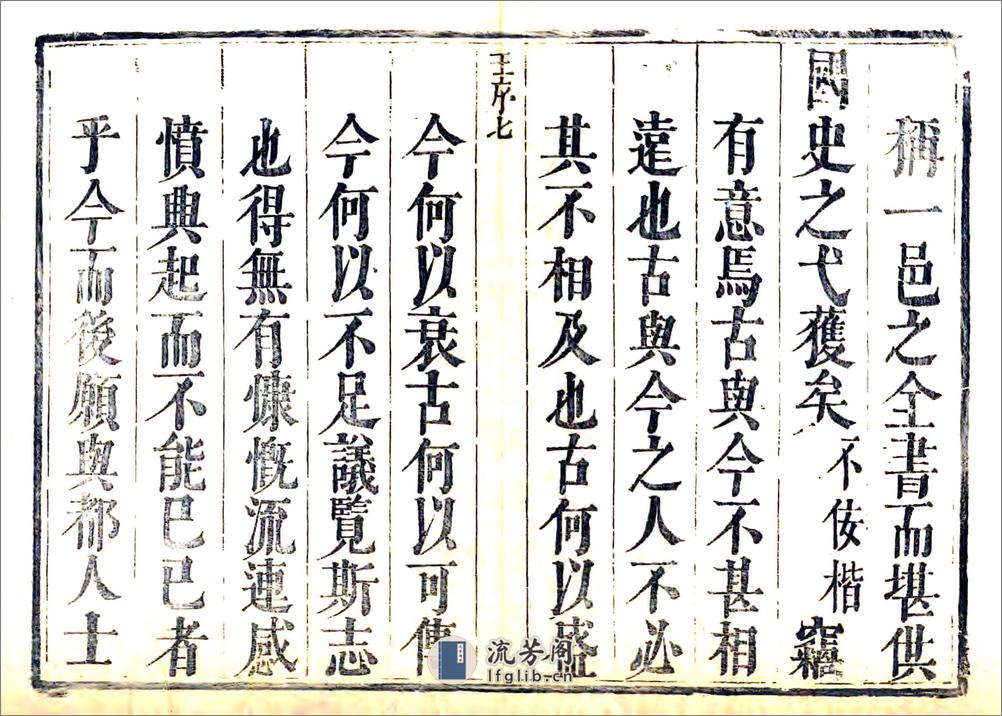 稱一邑之全書而堪供
國史之弋獲矣不佞楷竊
有意焉古與今不甚相
遠也古與今之人不必
其不相及也古何以盛
王序七
今何以衰古何以可傳
今何以不足議覽斯志
也得無有慷慨流連感
憤興起而不能已已者
乎今而後願與都人士
流芳阁
lfglib.cn